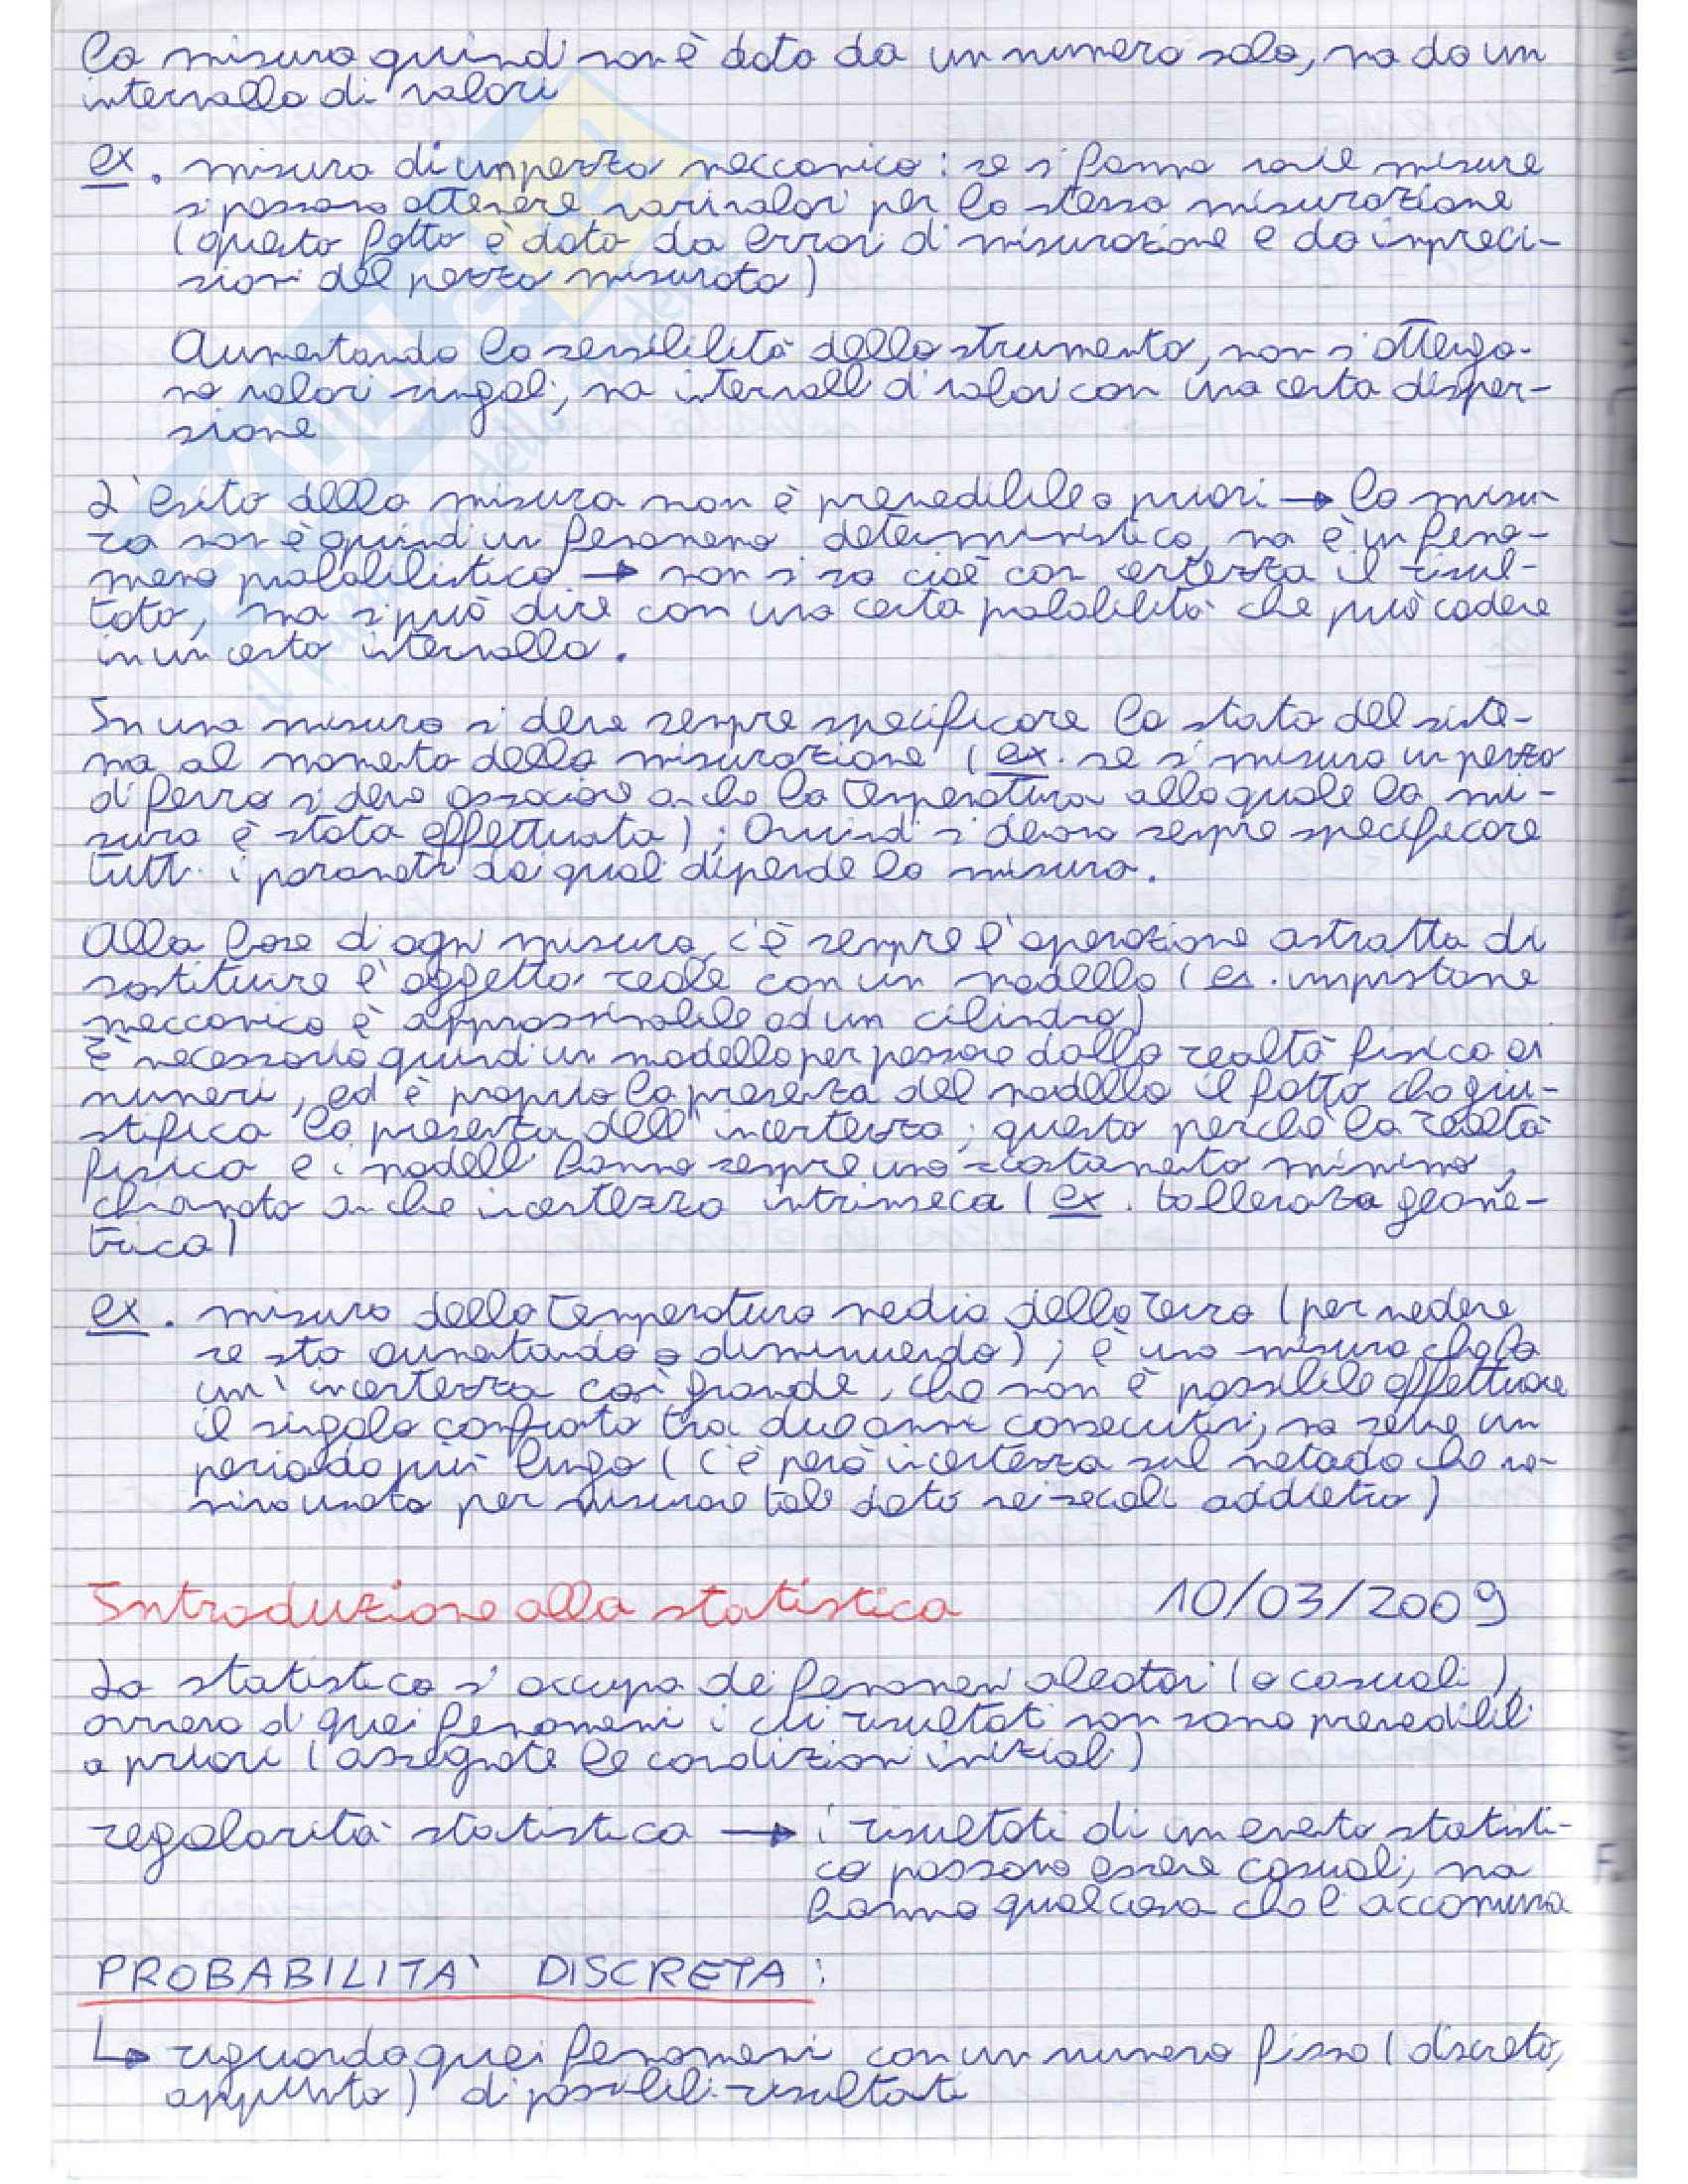 la misura quindi non è data da un numero solo, ma da un
intervallo di valori
ex. misura di un pezzo meccanico: se si fanno varie misure
si possono ottenere vari valori per la stessa misurazione
(questo fatto è dato da errori di misurazione e da impreci-
sioni del pezzo misurato)
Aumentando la sensibilità dello strumento, non si ottengo-
no valori singoli, ma intervalli di valori con una certa disper-
sione
L'esito della misura non è prevedibile a priori → la misu-
ra non è quindi un fenomeno deterministico, ma è un feno-
meno probabilistico → non si sa cioè con certezza il risul-
tato, ma si può dire con una certa probabilità che può cadere
in un certo intervallo.
In una misura si deve sempre specificare lo stato del siste-
ma al momento della misurazione (ex. se si misura un pezzo
di ferro si deve associare anche la temperatura alla quale la mi-
sura è stata effettuata); Quindi si devono sempre specificare
tutti i parametri da quali dipende la misura.
Alla base di ogni misura, c'è sempre l'operazione astratta di
sostituire l'oggetto reale con un modello (es. un pistone
meccanico è approssimabile ad un cilindro)
È necessario quindi un modello per passare dalla realtà fisica ai
numeri, ed è proprio la presenza del modello il fatto che giu-
stifica la presenza dell'incertezza; questo perché la realtà
fisica e i modelli hanno sempre uno scostamento minimo,
chiamato anche incertezza intrinseca (ex. tolleranza geome-
trica)
ex. misura della temperatura media della terra (per vedere
se sta aumentando o diminuendo); è una misura che ha
un'incertezza così grande, che non è possibile effettuare
il singolo confronto tra due anni consecutivi, ma serve un
periodo più lungo (c'è però incertezza sul metodo che ve-
niva usato per misurare tale dato nei secoli addietro)
Introduzione alla statistica 10/03/2009
La statistica si occupa dei fenomeni aleatori (o casuali),
ovvero di quei fenomeni i cui risultati non sono prevedibili
a priori (assegnate le condizioni iniziali)
regolarità statistica → i risultati di un evento statisti-
co possono essere casuali, ma
hanno qualcosa che li accomuna
PROBABILITA' DISCRETA:
↳ riguarda quei fenomeni con un numero fisso (discreto,
appunto) di possibili risultati